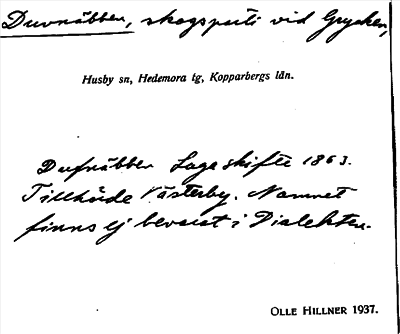 Duvnäbben, skogsparti vid Grycken,
Husby sn, Hedemora tg, Kopparbergs län.
Dufnäbben Laga skifte 1863.
Tillhörde Västerby. Namnet
finns ej bevarat i Dialekten.
OLLE HILLNER 1937.